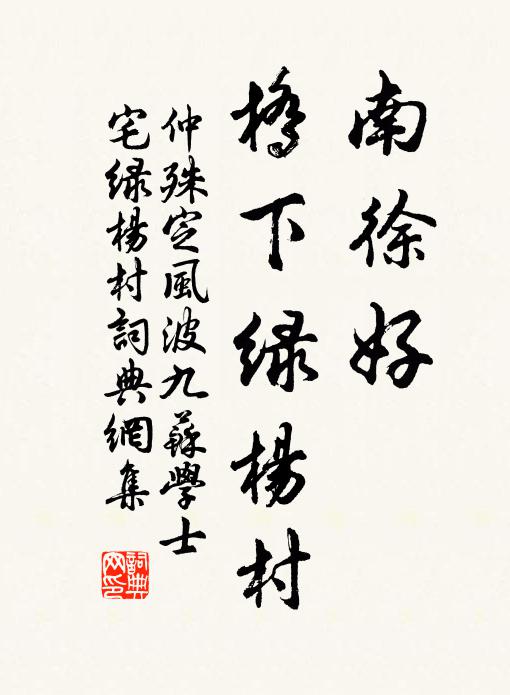 南徐好
橋下緑楊村
仲殊定風波九蘇學士
宅緑楊村詞典網集
詞典
网印